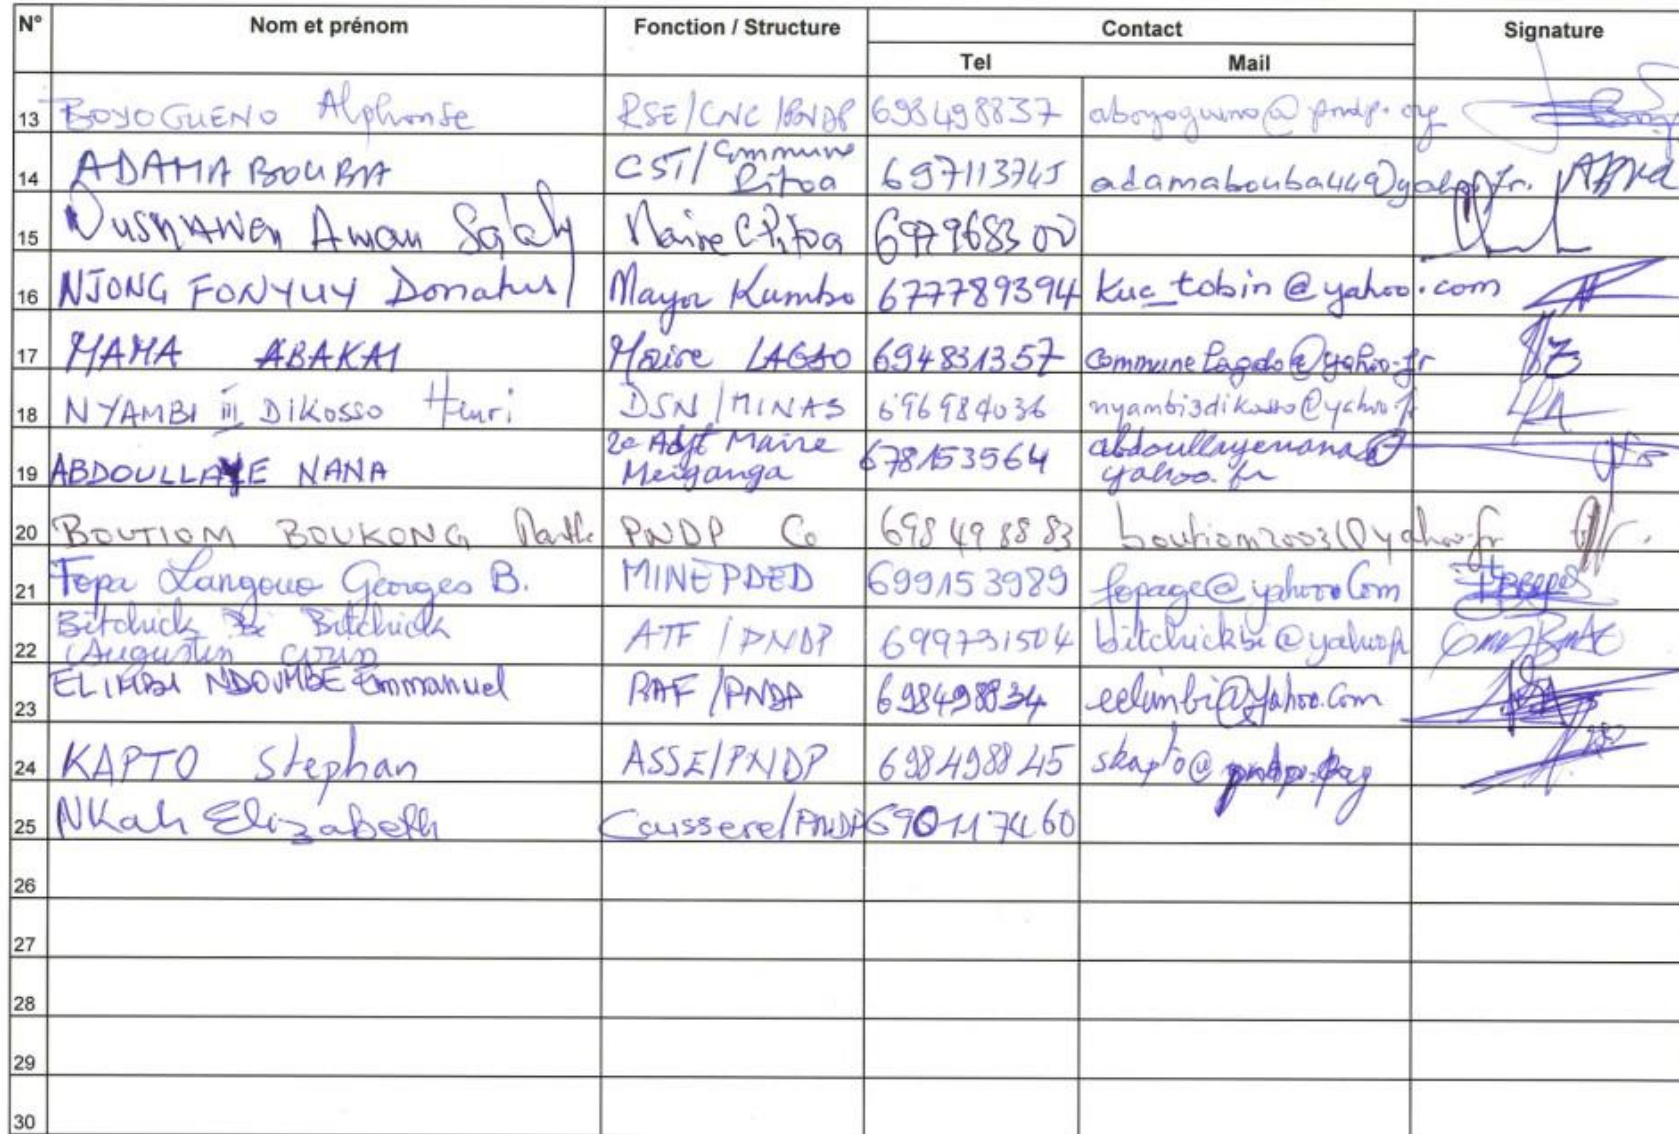 N° Nom et prénom Fonction / Structure Contact Signature
Tel Mail
13 BOYOGUENO Alphonse RSE/CNC/PNDP 698498837 aboyogueno@pndp.org
14 ADAMA BOUBA CST/Commune Pitoa 697113745 adamabouba449@yahoo.fr.
15 Aman Salaly Maire C. Pitoa
16 NJONG FONYUY Donatus Mayor Kumbo 677789394 kuc_tobin@yahoo.com
17 MAMA ABAKAI Maire LAGDO 694831357 communelagdo@yahoo.fr
18 NYAMBI III DIKOSSO Henri DSN/MINAS 696984036 nyambi3dikosso@yahoo.fr
19 ABDOULLAYE NANA 2e Adjt Maire Meiganga 678153564 abdoullayenana@yahoo.fr
20 BOUTIOM BOUKONG Marthe PNDP Co 698498883 boutiom2003@yahoo.fr
21 Fopa Langoue Georges B. MINEPDED 699153989 fopage@yahoo.Com
22 Bitchick Bi Bitchick Augustin ATF/PNDP 699731504 bitchickbi@yahoo.fr
23 ELIMBI NDOUMBE Emmanuel RAF/PNDP 698498834 eelimbi@yahoo.Com
24 KAPTO Stephan ASSE/PNDP 698498845 skapto@pndp.org
25 NKah Elizabeth /PNDP 690117460
26
27
28
29
30